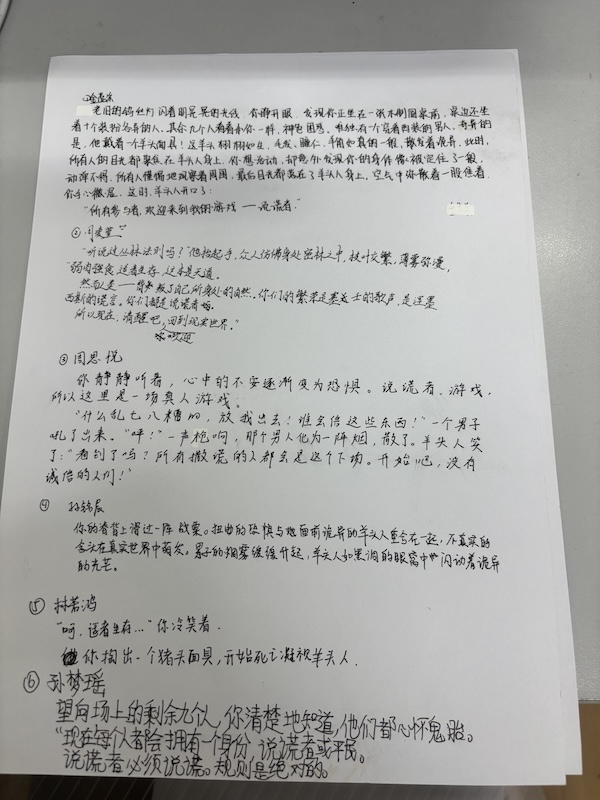 老旧的钨丝灯闪着明晃晃的光线。你睁开眼，发现你正坐在一张木制圆桌前，桌边还坐
着十个装扮各异的人。其余几个人看着和你一样，神色困惑。唯独有一个穿着西装的男人，奇异的
是，他戴着一个羊头面具！这羊头栩栩如生，毛发、瞳仁、羊角如真的一般，散发着诡异。此时，
所有人的目光都聚焦在羊头人身上。你想活动，却意外发现你的身体像被定住了一般，
动弹不得。所有人惶惕地观察着周围，最后目光都落在了羊头人身上，空气中弥散着一股焦着
这时，羊头人开口了：
“所有参与者，欢迎来到我的游戏——说谎者。”
②周奕萱
“听说过丛林法则吗？”他抬起手，众人仿佛身处密林之中，枝叶交繁，薄雾弥漫，
“弱肉强食，适者生存，这本是天道。
然而是——背叛了自己所身处的自然。你们的繁荣是塞壬的歌声，是
西斯的谎言。你们都是说谎者
所以现在，清醒吧，回到现实世界。”
欢迎
③周思悦
你静静听着，心中的不安逐渐变为恐惧。说谎者、游戏，
所以这里是一场真人游戏。
“什么乱七八糟的，放我出去！谁会信这些东西！”一个男子
吼了出来。“呯！”一声枪响，那个男人化为一阵烟，散了。羊头人笑
了：“看到了吗？所有撒谎的人都会是这个下场。开始吧，没有
诚信的人们！”
④ 孙铭辰
你的脊背上滑过一阵战栗。扭曲的恐惧与他面前诡异的羊头人重合在一起，不真实的
念头在真实世界中萌发。男子的烟雾缓缓升起，羊头人如黑洞的眼窝中闪动着诡异
的光芒。
⑤ 林若鸿
“呵，适者生存…”你冷笑着.
你掏出一个猪头面具，开始死亡凝视羊头人.
⑥ 孙梦瑶
望向场上的剩余九个人，你清楚地知道，他们都心怀鬼胎。
“现在每个人都会拥有一个身份，说谎者或平民。
说谎者必须说谎。规则是绝对的。